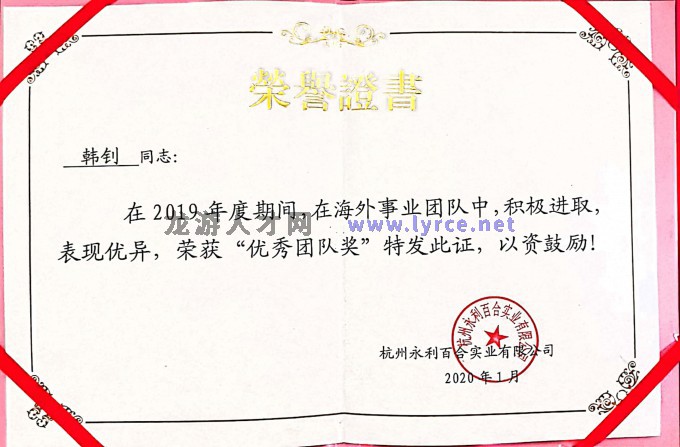 榮譽證書
韩钊 同志:
在 2019 年度期间, 在海外事业团队中, 积极进取,
龙游人才网 www.lyrce.net
表现优异, 荣获 “优秀团队奖” 特发此证, 以资鼓励!
杭州永利百合实业有限公司
杭州永利百合实业有限公司
2020 年 1 月